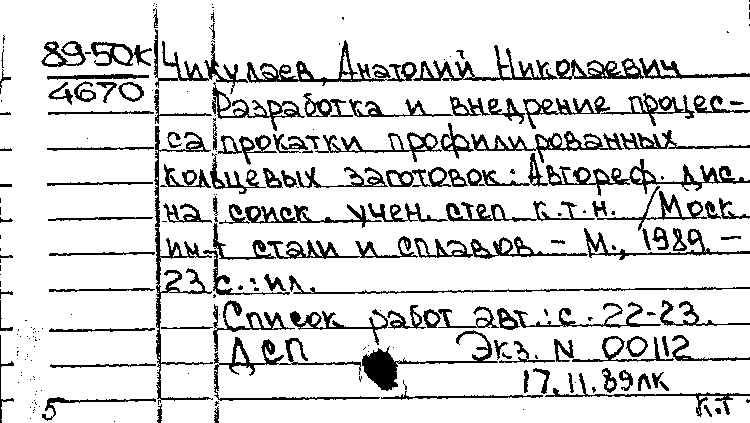 89-50к
4670
Чикулаев, Анатолий Николаевич
Разработка и внедрение процес-
са прокатки профилированных
кольцевых заготовок: Автореф. дис.
на соиск. учен. степ. к.т.н. / Моск.
ин-т стали и сплавов. - М., 1989. -
23 с.: ил.
Список работ авт.: с. 22-23.
ДСП Экз. N 00112
17.11.89лк
5 К.Т